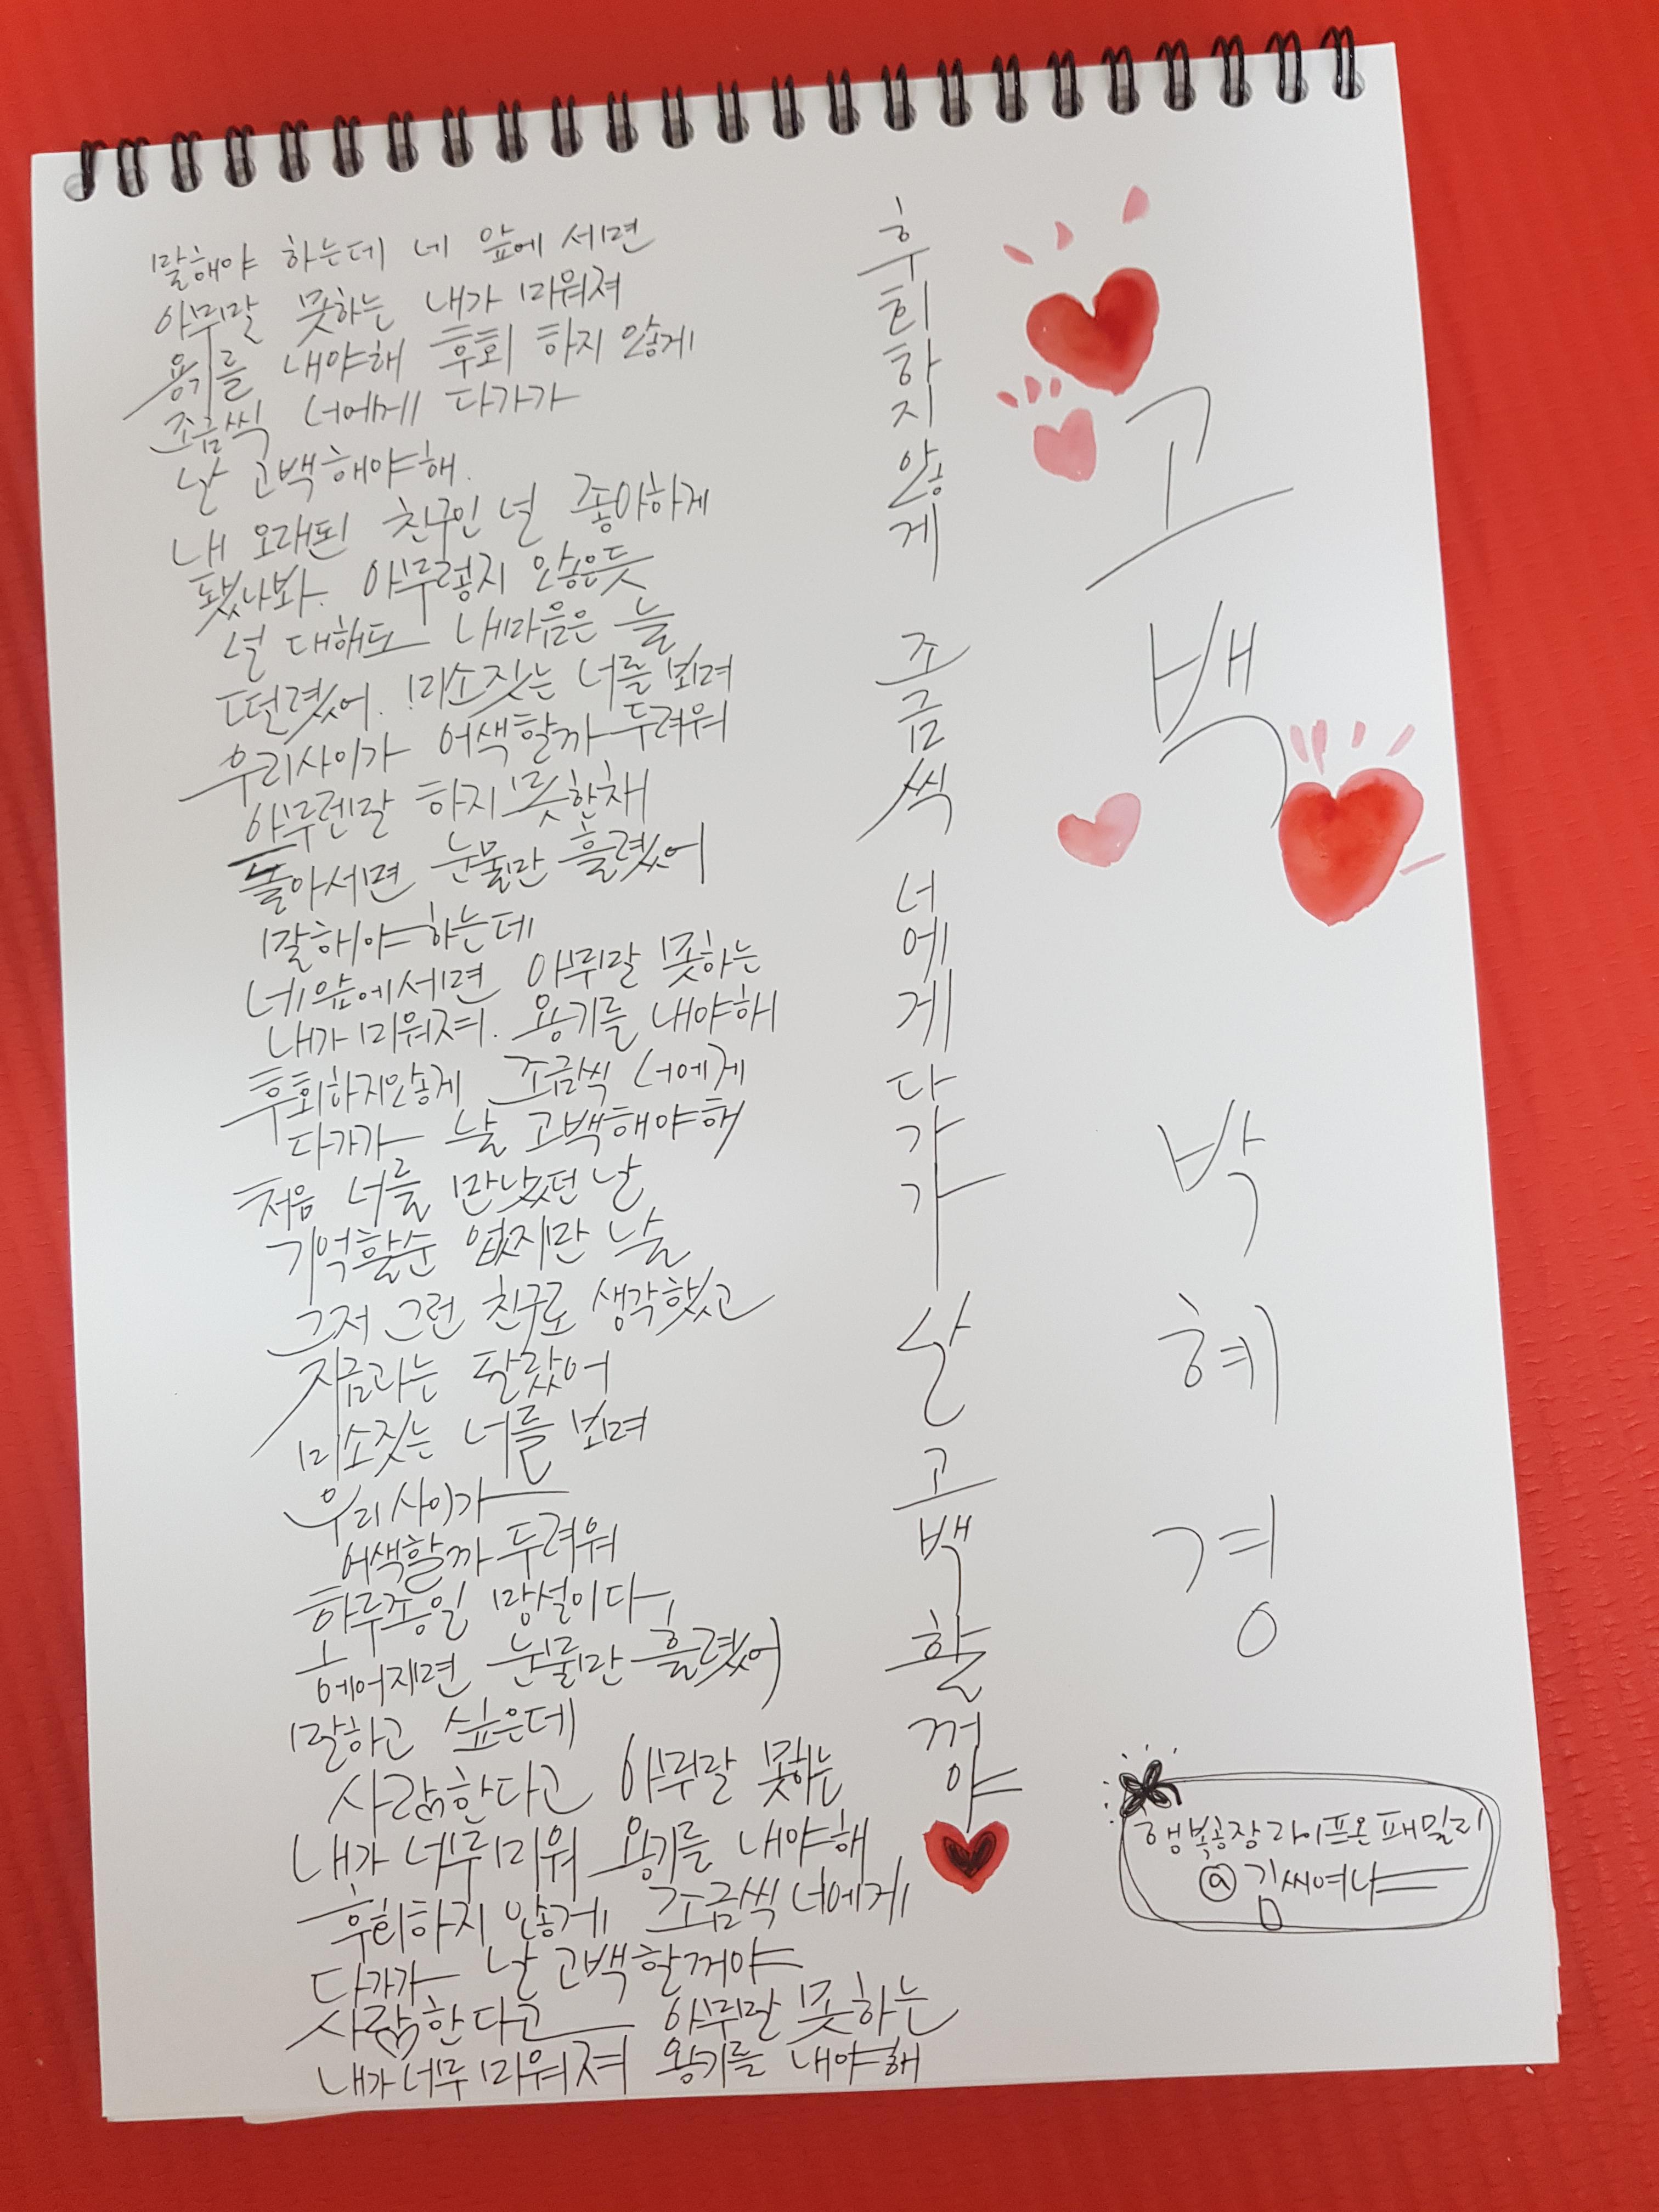 말해야 하는데 네 앞에 서면
아무말 못하는 내가 미워져
용기를 내야해 후회 하지 않게
조금씩 너에게 다가가
날 고백해야해.
내 오래된 친구인 널 좋아하게
됐나봐. 아무렇지 않은듯
널 대해도 내마음은 늘
떨렸어. 미소짓는 너를 보며
우리사이가 어색할까 두려워
아무런말 하지 못한채
돌아서면 눈물만 흘렸어
말해야하는데
네앞에서면 아무말 못하는
내가 미워져. 용기를 내야해
후회하지않게 조금씩 너에게
다가가 날 고백해야해
처음 너를 만났던 날
기억할순 없지만 늘
그저 그런 친구로 생각했고
지금과는 달랐어
미소짓는 너를 보며
우리사이가
어색할까 두려워
하루종일 망설이다
헤어지면 눈물만 흘렸어
말하고 싶은데
사랑한다고 아무말 못하는
내가 너무미워 용기를 내야해
후회하지 않게 조금씩 너에게
다가가 날 고백할꺼야
사랑한다고 아무말 못하는
내가너무 미워져 용기를 내야해
후회하지않게 조금씩 너에게 다가가 날 고백할꺼야
고백
박혜경
행복공장라이프온패밀리
@김씨여나